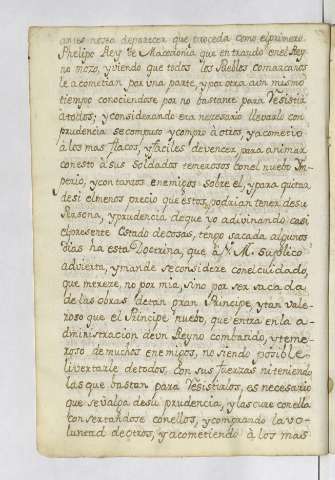 antes nessa deparecer que proceda como el primero
Phelipo Rey de Macedonia que entrando en el Rey
no mozo, y viendo que todos los Pueblos comarcanos
le acometian por una parte, y por otra aun mismo
tiempo conociendose por no bastante para Resistir
atodos; y considerando era necesario llevarlo con
prudencia se compuso y compro à otros, y acometio
à los mas flacos, y faciles devencer, para animar
con esto à sus Soldados temerosos con el nuebo Im-
perio, y con tantos enemigos sobre él, y para quitar
desi el menos precio que estos, podrian tener de su
Persona, y prudencia de que yo adivinando casi
el presente Estado de cosas, tengo sacada algunos
dias ha esta Doctrina, que à V. M. suplico
advierta, y mande se considere con el cuidado,
que merece, no por mia, sino por ser sacada
de las obras de tan gran Principe y tan vale-
roso que el Principe nuebo, que entra en la a-
dministracion de un Reyno combatido, y teme-
roso de muchos enemigos, no siendo posible
livertarle de todos, con sus fuerzas ni teniendo
las que bastan para Resistirlos, es necesario
que se valga de su prudencia, y las cure con ella
concertandose con ellos, y comprando la vo-
luntad de otros, y acometiendo à los mas